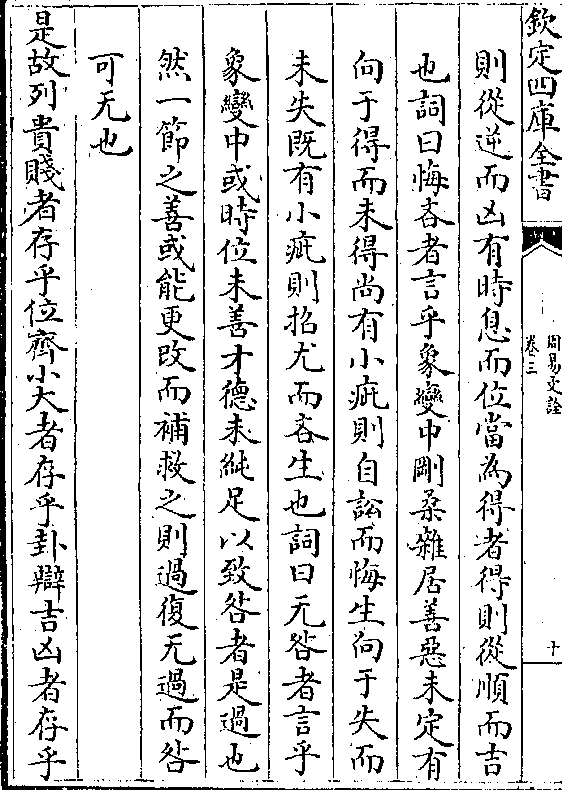 欽定四庫全書
周易文詮
卷三
十
則從逆而凶有時息而位當為得者得則從順而吉
也詞曰悔吝者言乎象變中剛柔雜居善惡未定有
向于得而未得尚有小疵則自訟而悔生向于失而
未失既有小疵則招尤而吝生也詞曰无咎者言乎
象變中或時位未善才德未純足以致咎者是過也
然一節之善或能更改而補救之則過復无過而咎
可无也
是故列貴賤者存乎位齊小大者存乎卦辯吉凶者存乎